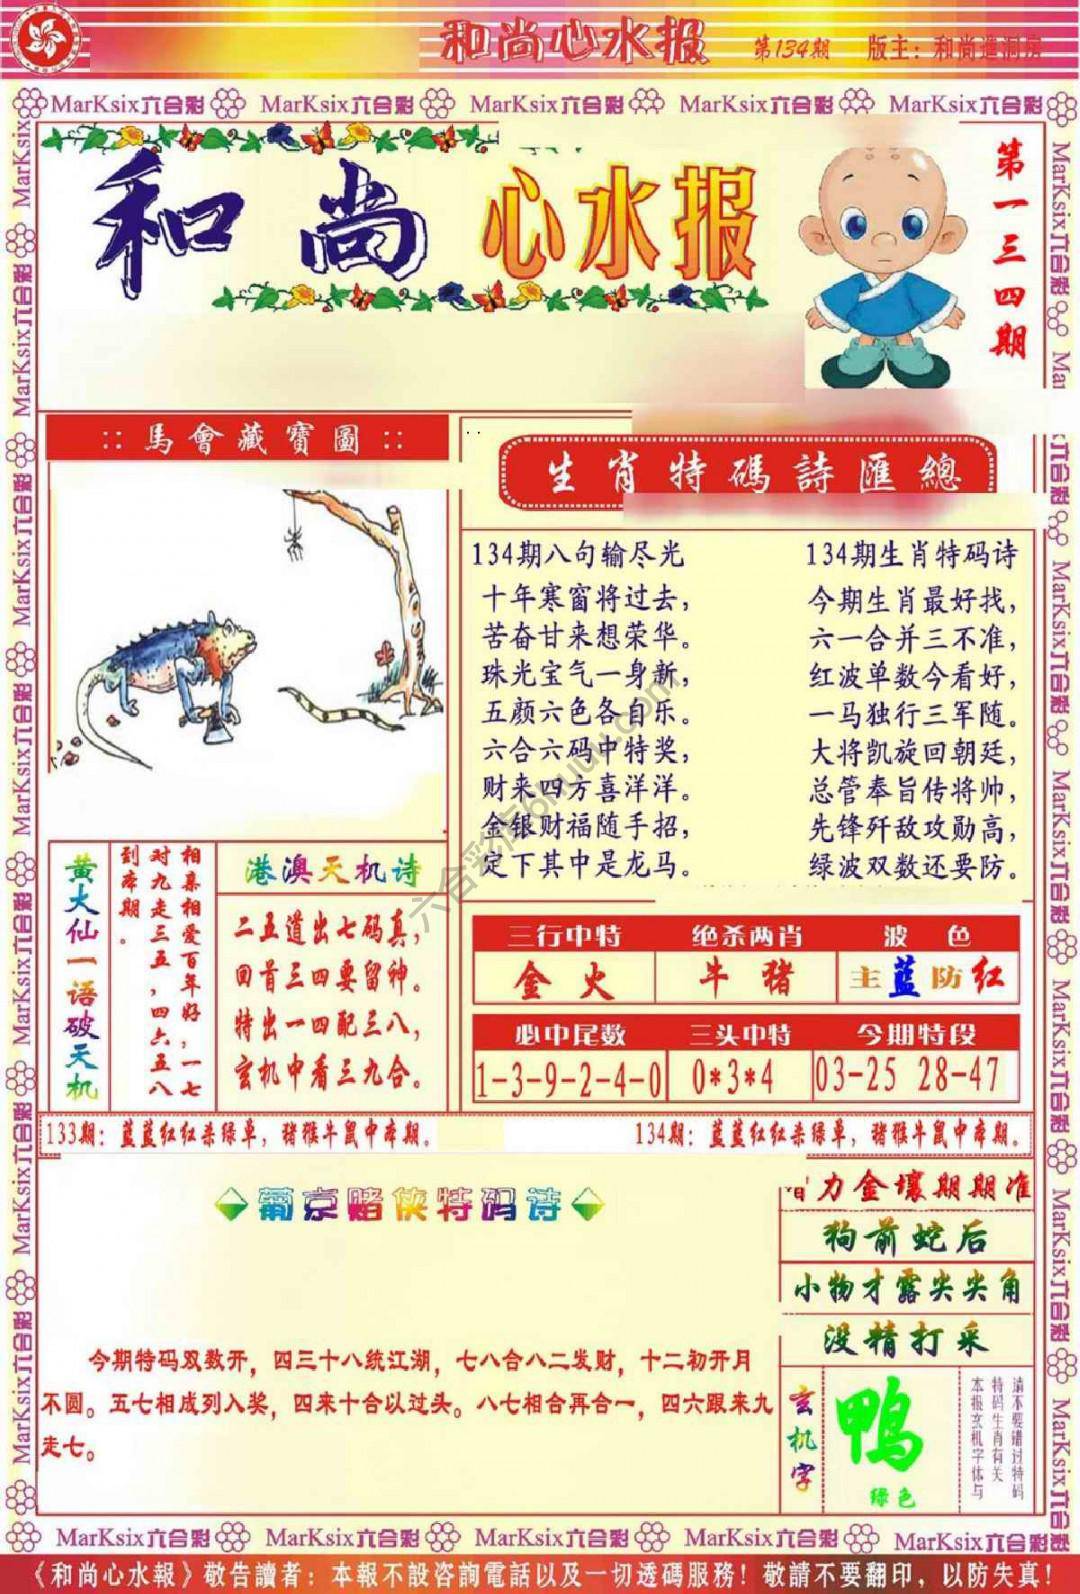 和尚心水报 第134期 版主：和尚進洞房
MarKsix六合彩 MarKsix六合彩 MarKsix六合彩 MarKsix六合彩 MarKsix六合彩
和尚 心水报
第一三四期
::馬會藏寶圖::
生肖特碼詩匯總
134期八句输尽光
十年寒窗将过去，
苦奋甘来想荣华。
珠光宝气一身新，
五颜六色各自乐。
六合六码中特奖，
财来四方喜洋洋。
金银财福随手招，
定下其中是龙马。
134期生肖特码诗
今期生肖最好找，
六一合并三不准，
红波单数今看好，
一马独行三军随。
大将凯旋回朝廷，
总管奉旨传将帅，
先锋歼敌攻勋高，
绿波双数还要防。
黄大仙一语破天机
相亲相爱百年好，一七
对九走三五，四六五八
到本期。
港澳天机诗
二五道出七码真，
回首三四要留神。
特出一四配三八，
玄机中看三九合。
三行中特 绝杀两肖 波色
金火 牛猪 主蓝防红
必中尾数 三头中特 今期特段
1-3-9-2-4-0 0*3*4 03-25 28-47
133期：蓝蓝红红杀绿单，猪猴牛鼠中本期。
134期：蓝蓝红红杀绿单，猪猴牛鼠中本期。
葡京赌侠特码诗
今期特码双数开，四三十八统江湖，七八合八二发财，十二初开月
不圆。五七相成列入奖，四来十合以过头。八七相合再合一，四六跟来九
走七。
力金壤期期准
狗前蛇后
小物才露尖尖角
没精打采
玄机字
鸭
绿色
请不要错过特码
特码生肖有关
本报玄机字体与
六合彩库6huuu.com
MarKsix六合彩 MarKsix六合彩 MarKsix六合彩 MarKsix六合彩 MarKsix六合彩
《和尚心水報》敬告讀者：本報不設咨詢電話以及一切透碼服務！敬請不要翻印，以防失真！